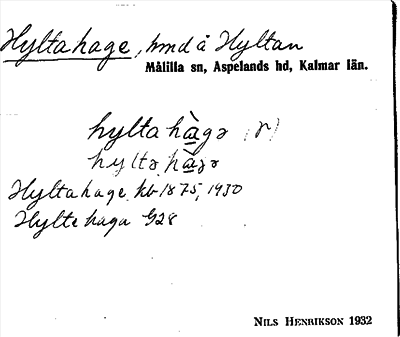 Hyltahage, hmd å Hyltan
Målilla sn, Aspelands hd, Kalmar län.
hyltahàgə (r)
hyltəhàgə
Hyltahage kb 1875, 1930
Hyltehaga G28
NILS HENRIKSON 1932